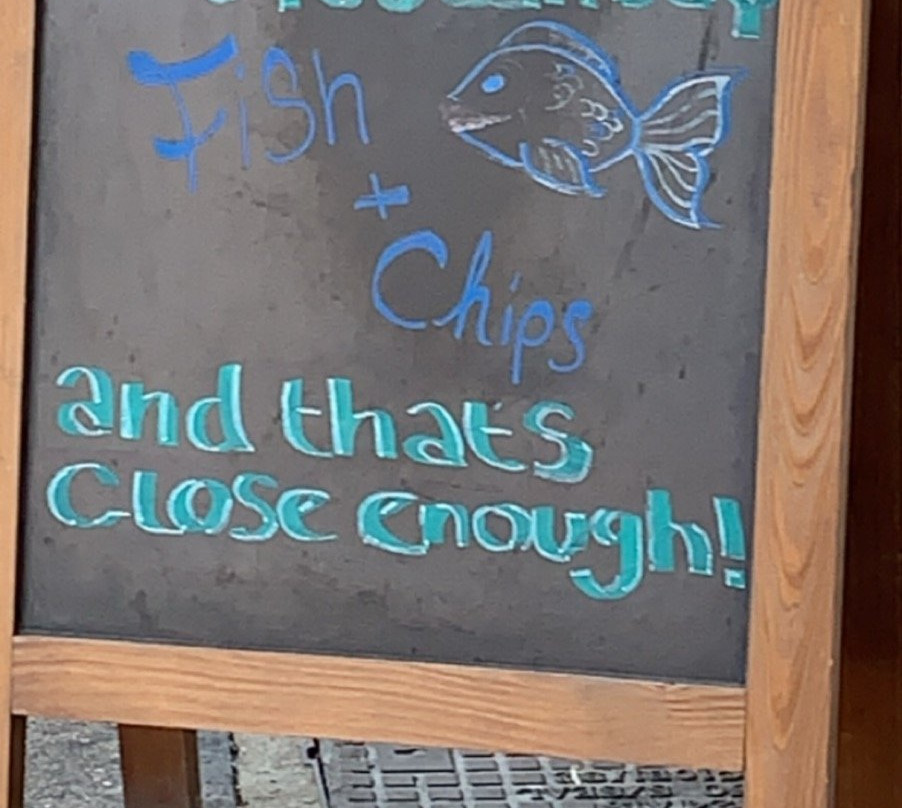 Fish
+
Chips
and thats
Close enough!